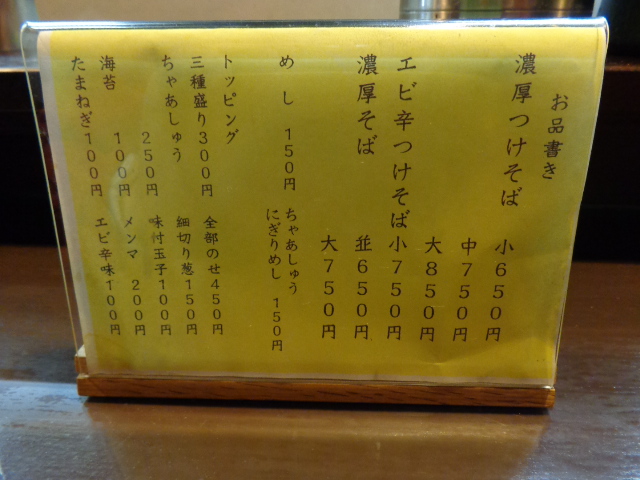 お品書き
濃厚つけそば 小６５０円
中７５０円
大８５０円
エビ辛つけそば 小７５０円
濃厚そば 並６５０円
大７５０円
めし １５０円
ちゃあしゅう
にぎりめし １５０円
トッピング
三種盛り３００円
ちゃあしゅう
２５０円
海苔 １００円
たまねぎ１００円
全部のせ４５０円
細切り葱１５０円
味付玉子１００円
メンマ ２００円
エビ辛味１００円